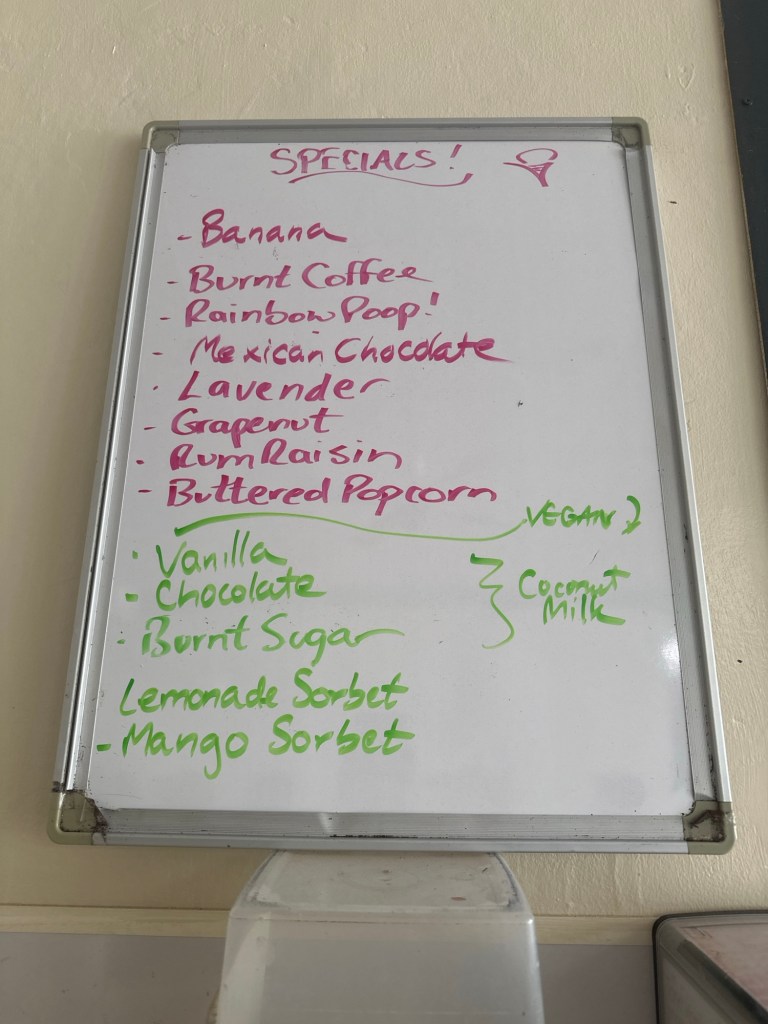 SPECIALS!
- Banana
- Burnt Coffee
- Rainbow Poop!
- Mexican Chocolate
- Lavender
- Grapenut
- Rum Raisin
- Buttered Popcorn
VEGAN
- Vanilla
- Chocolate
- Burnt Sugar
Coconut
Milk
Lemonade Sorbet
- Mango Sorbet